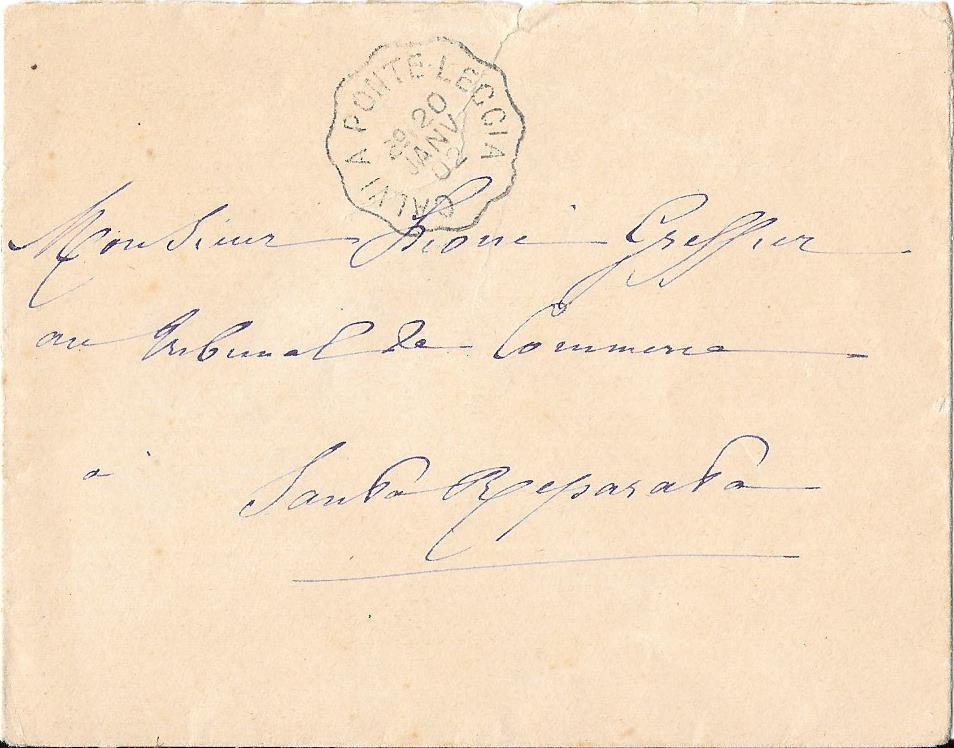 CALVI A PONTE-LECCIA
20
JANV
02
Monsieur Greffier
au Tribunal de Commerce
a Santa Reparata